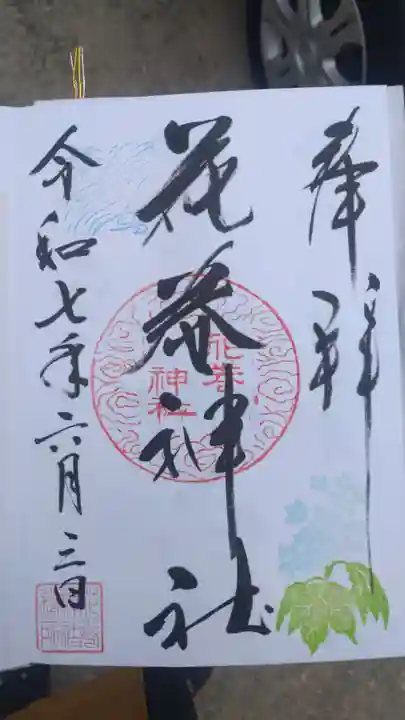 奉拝
花巻神社
花巻
神社
令和七年六月三日